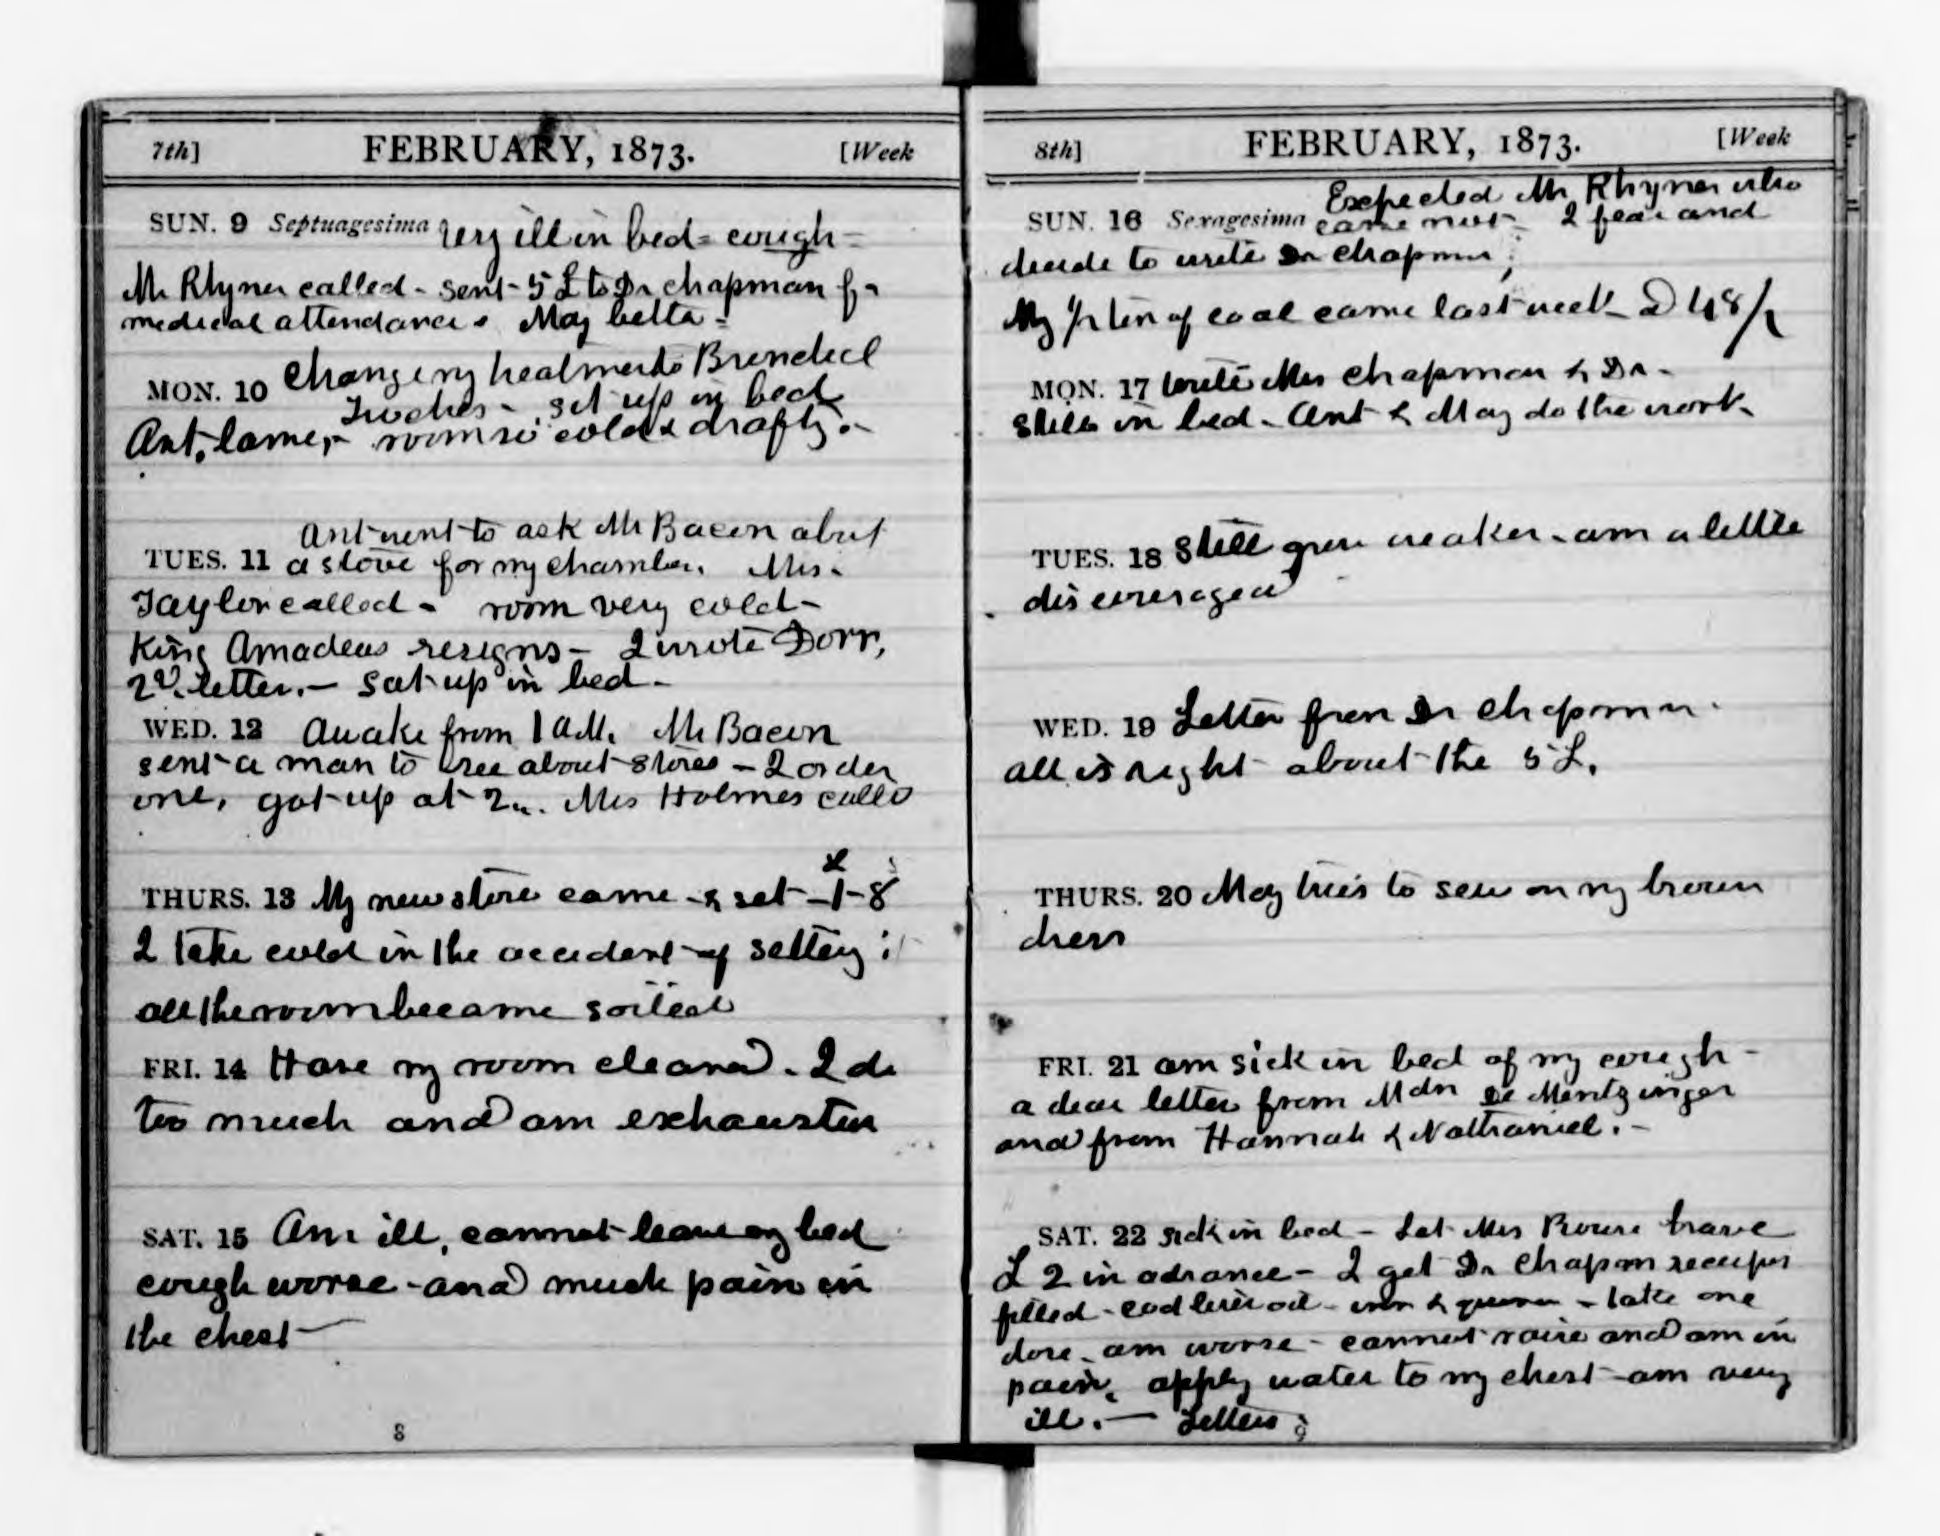 7th] FEBRUARY, 1873. [Week
SUN. 9 Septuagesima Very ill in bed = cough -
Mr Rhyner called - sent 5 £ to Dr Chapman for
medical attendance. May better -
MON. 10 Changing treatments Brendeil
Troches - set up in bed
Ant. lamer - room so cold & drafty. -
Ant went to ask Mr Bacon about
TUES. 11 a stove for my chamber. Mrs.
Taylor called - room very cold -
King Amadeus resigns - I wrote Dorr,
2d. letter. - Sat up in bed -
WED. 12 Awake from 1 AM. Mr Bacon
sent a man to see about stoves - I order
one, got up at 2.. Mrs Holmes calld
£ s
THURS. 13 My new stove came & set - 1 - 8
I take cold in the accident of setting it
all the room became soiled
FRI. 14 Have my room cleand. I do
too much and am exhausted
SAT. 15 Am ill, cannot leave my bed
cough worse - and much pain in
the chest
8
8th] FEBRUARY, 1873. [Week
Expected Mr Rhyner who
SUN. 16 Sexagesima came not - I fear and
decide to write Dr Chapman;
My 1/2 ton of coal came last week 48/
MON. 17 Write Mrs Chapman & Dr -
Still in bed. Ant & May do the work.
TUES. 18 Still grow weaker - am a little
discouraged
WED. 19 Letter from Dr Chapman.
all is right about the 5 £.
THURS. 20 May tries to sew on my brown
dress
FRI. 21 am sick in bed of my cough -
a dear letter from Mdn De Mentzinger
and from Hannah & Nathaniel. -
SAT. 22 sick in bed - Let Mrs Rouse have
£ 2 in advance - I get Dr Chapm receipes
filled - cod liver oil - iron & - take one
dose - am worse - cannot raise and am in
pain. apply water to my chest - am very
ill. - Letters
9